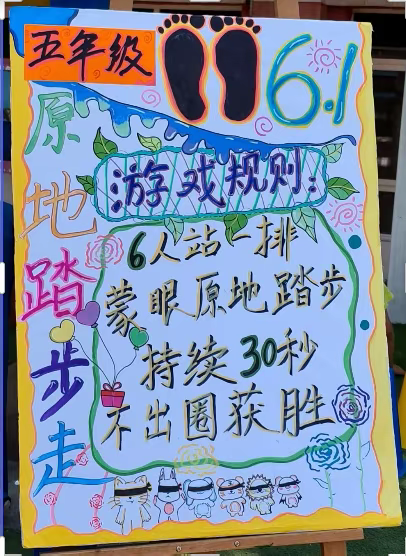 五年级
6.1
原地踏步走
游戏规则:
6人站一排
蒙眼原地踏步
持续30秒
不出圈获胜